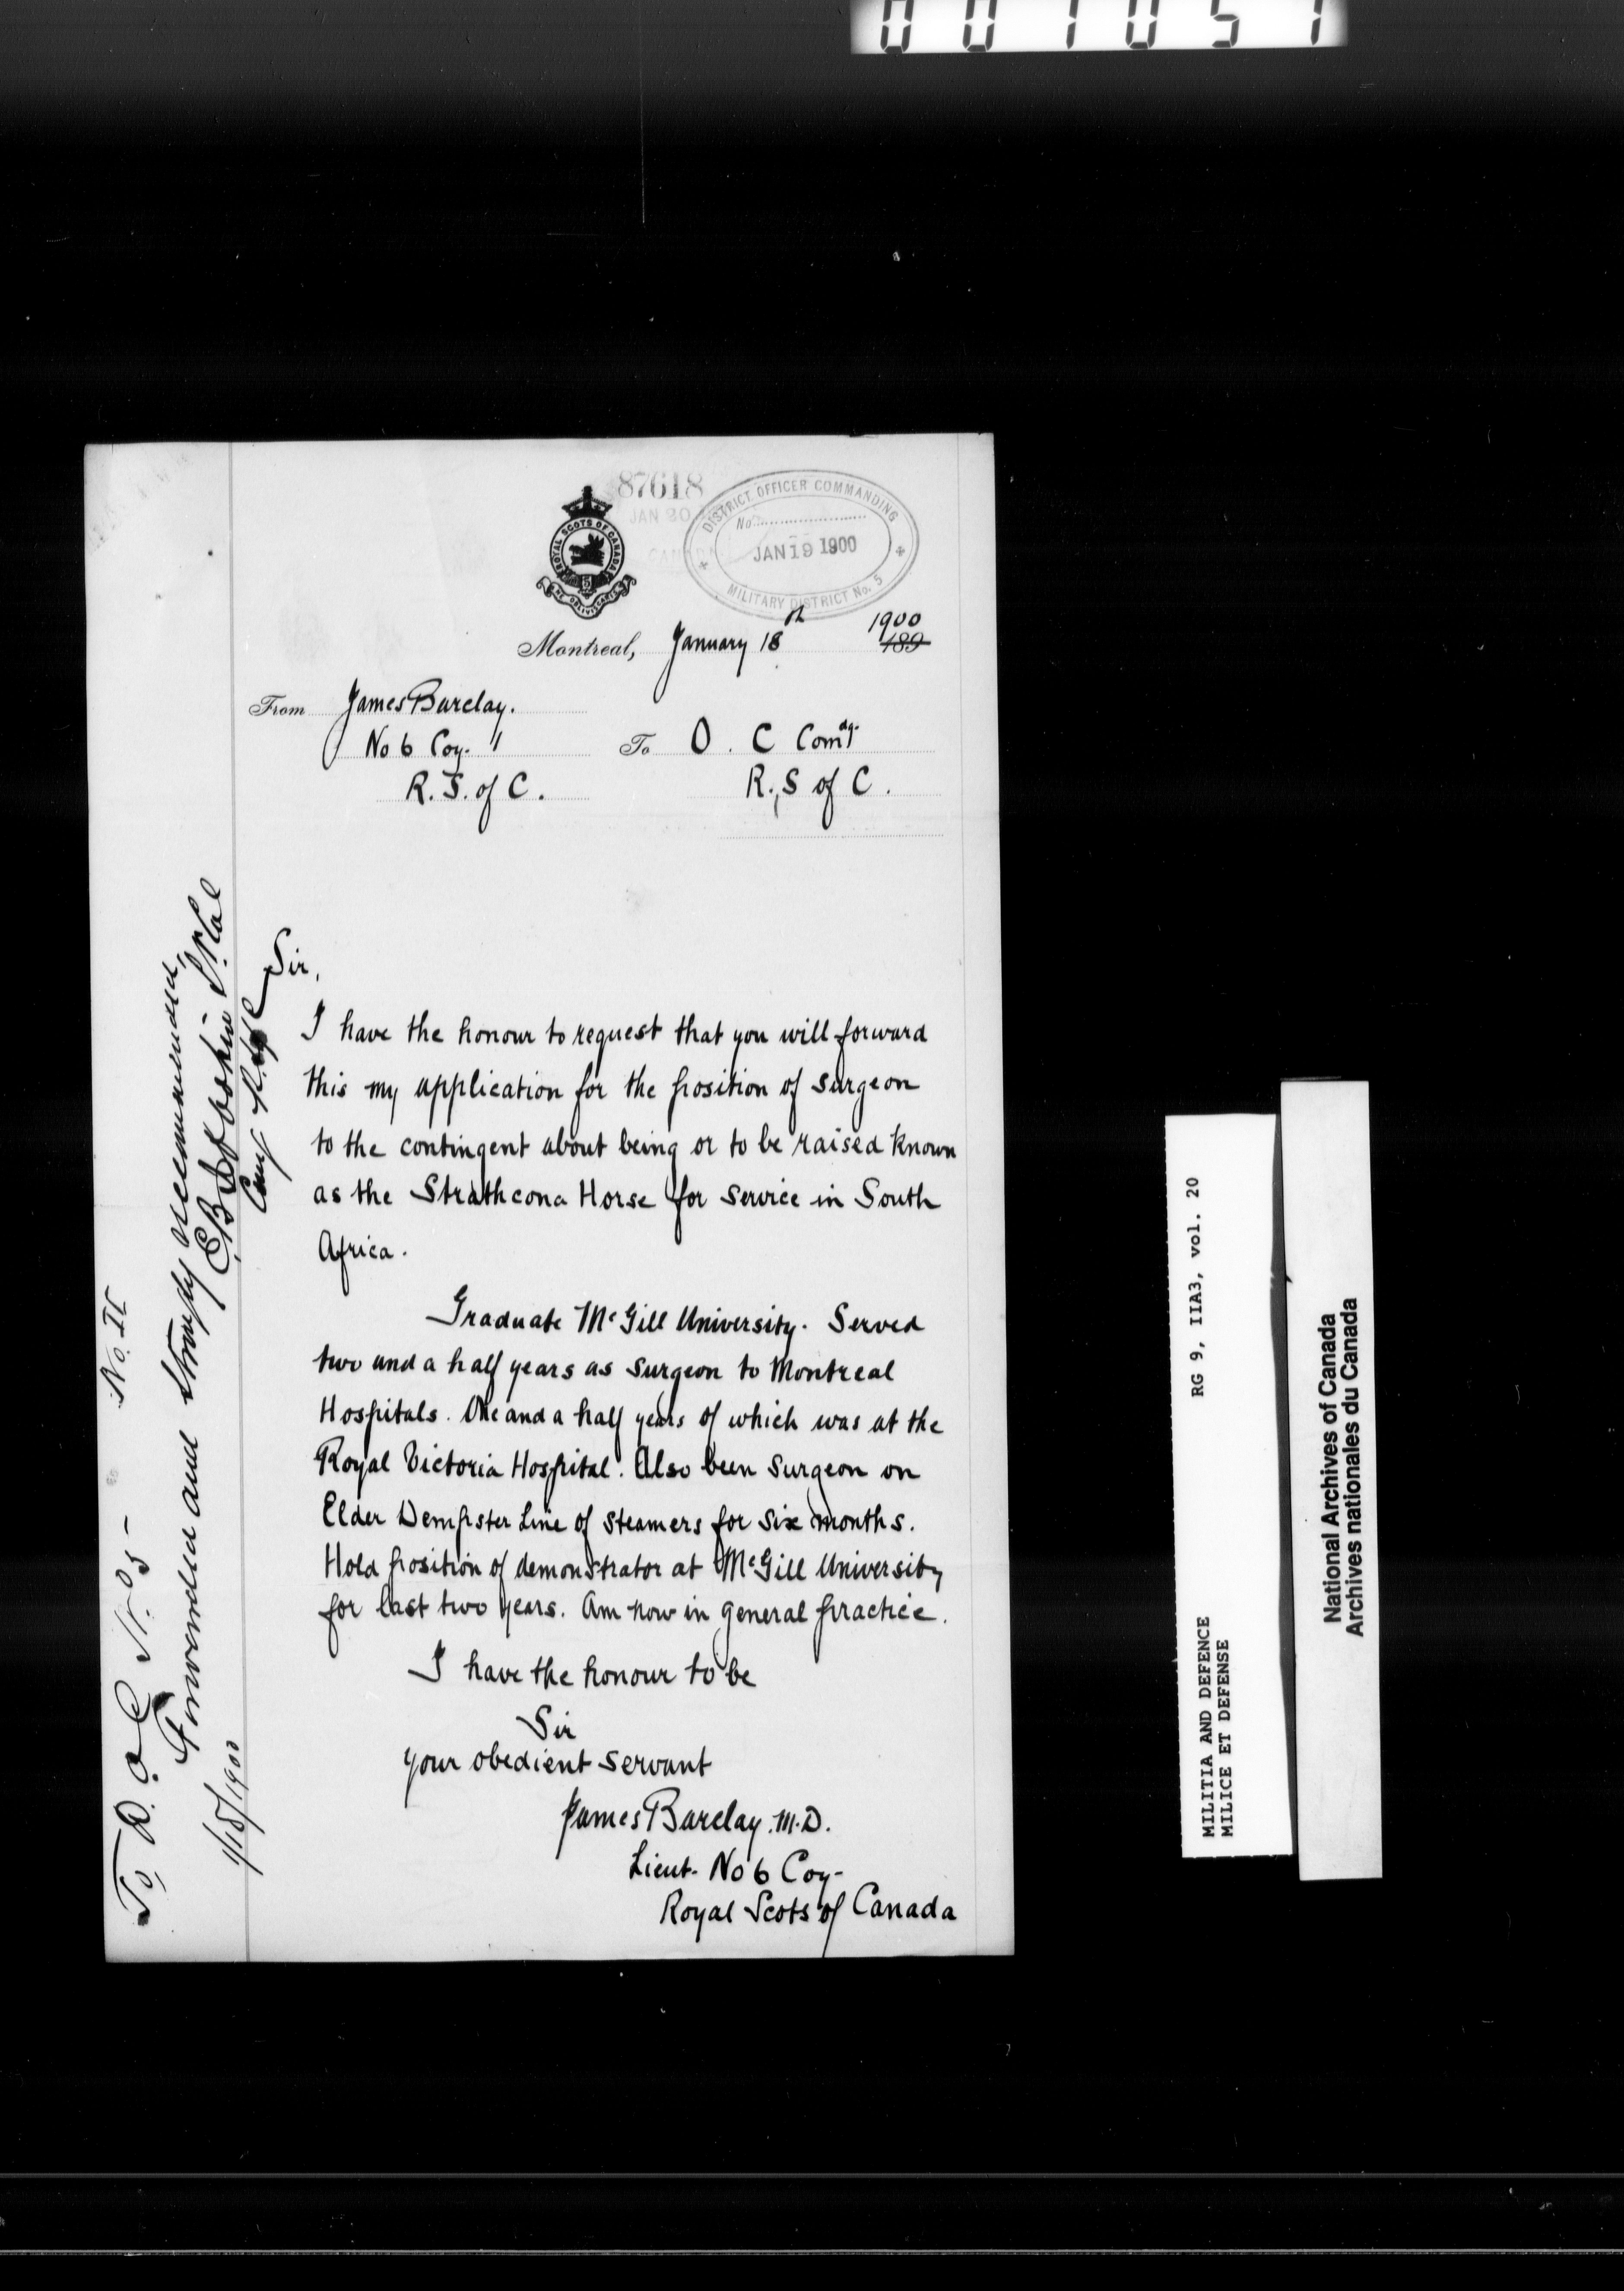 001051
87618
JAN 20
DISTRICT OFFICER COMMANDING
No.
JAN 19 1900
MILITARY DISTRICT No. 5
ROYAL SCOTS OF CANADA
5
NE OBLIVISCARIS
Montreal, January 18th 1900 189
From James Barclay.
No 6 Coy. "
R. S. of C.
To O. C Comdg.
R. S of C.
Sir,
I have the honour to request that you will forward
this my application for the position of surgeon
to the contingent about being or to be raised known
as the Strathcona Horse for service in South
Africa.
Graduate McGill University. Served
two and a half years as surgeon to Montreal
Hospitals. One and a half years of which was at the
Royal Victoria Hospital. Also been surgeon on
Elder Dempster Line of steamers for six months.
Hold position of demonstrator at McGill University
for last two years. Am now in general practice.
I have the honour to be
Sir
your obedient servant
James Barclay. M.D.
Lieut. No 6 Coy-
Royal Scots of Canada
No. II
To, D. O. C No. 5-
Forwarded and strongly recommended,
Lt. Col
1/18/1900
RG 9, IIA3, vol. 20
MILITIA AND DEFENCE
MILICE ET DEFENSE
National Archives of Canada
Archives nationales du Canada